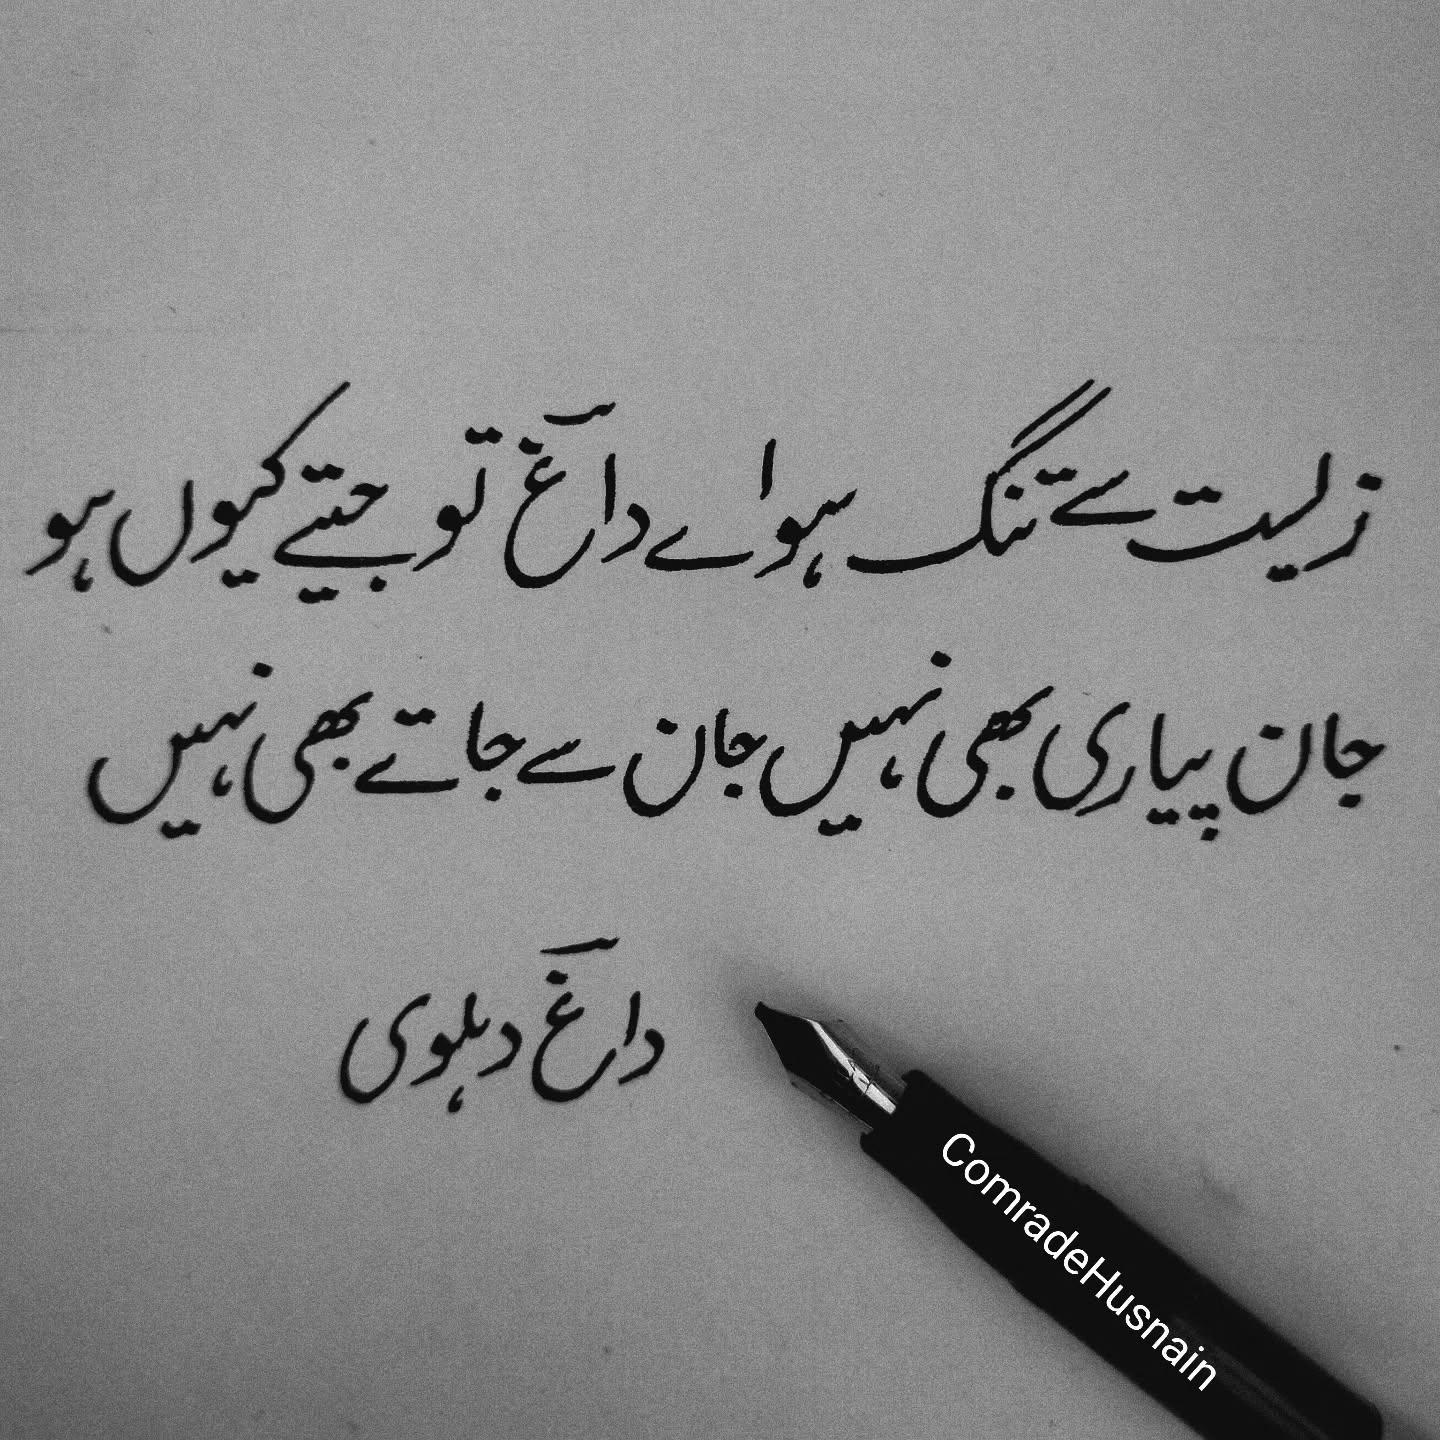 زیست سے تنگ ہو اے داغؔ تو جیتے کیوں ہو
جان پیاری بھی نہیں جان سے جاتے بھی نہیں
داغؔ دہلوی
ComradeHusnain